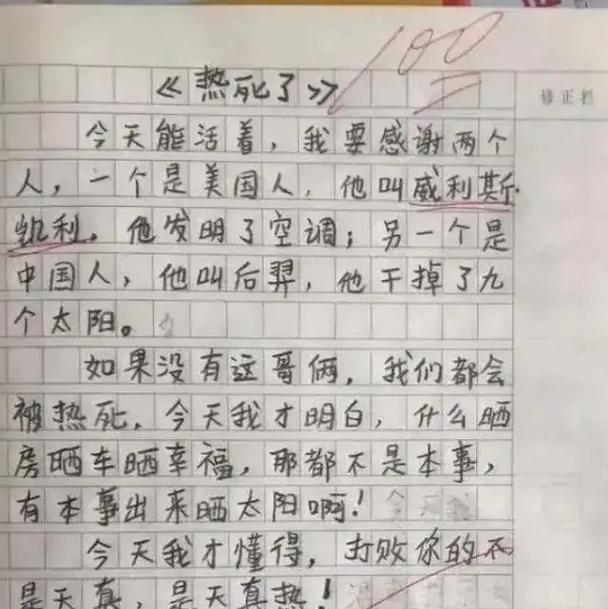 100
《热死了》
修正栏
今天能活着，我要感谢两个
人，一个是美国人，他叫威利斯·
凯利，他发明了空调；另一个是
中国人，他叫后羿，他干掉了九
个太阳。
如果没有这哥俩，我们都会
被热死，今天我才明白，什么晒
房晒车晒幸福，那都不是本事，
有本事出来晒太阳啊！
今天我才懂得，打败你的不
是天真，是天真热！